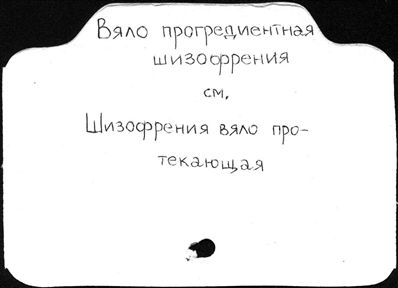 Вяло прогредиентная
шизофрения
см.
Шизофрения вяло про-
текающая